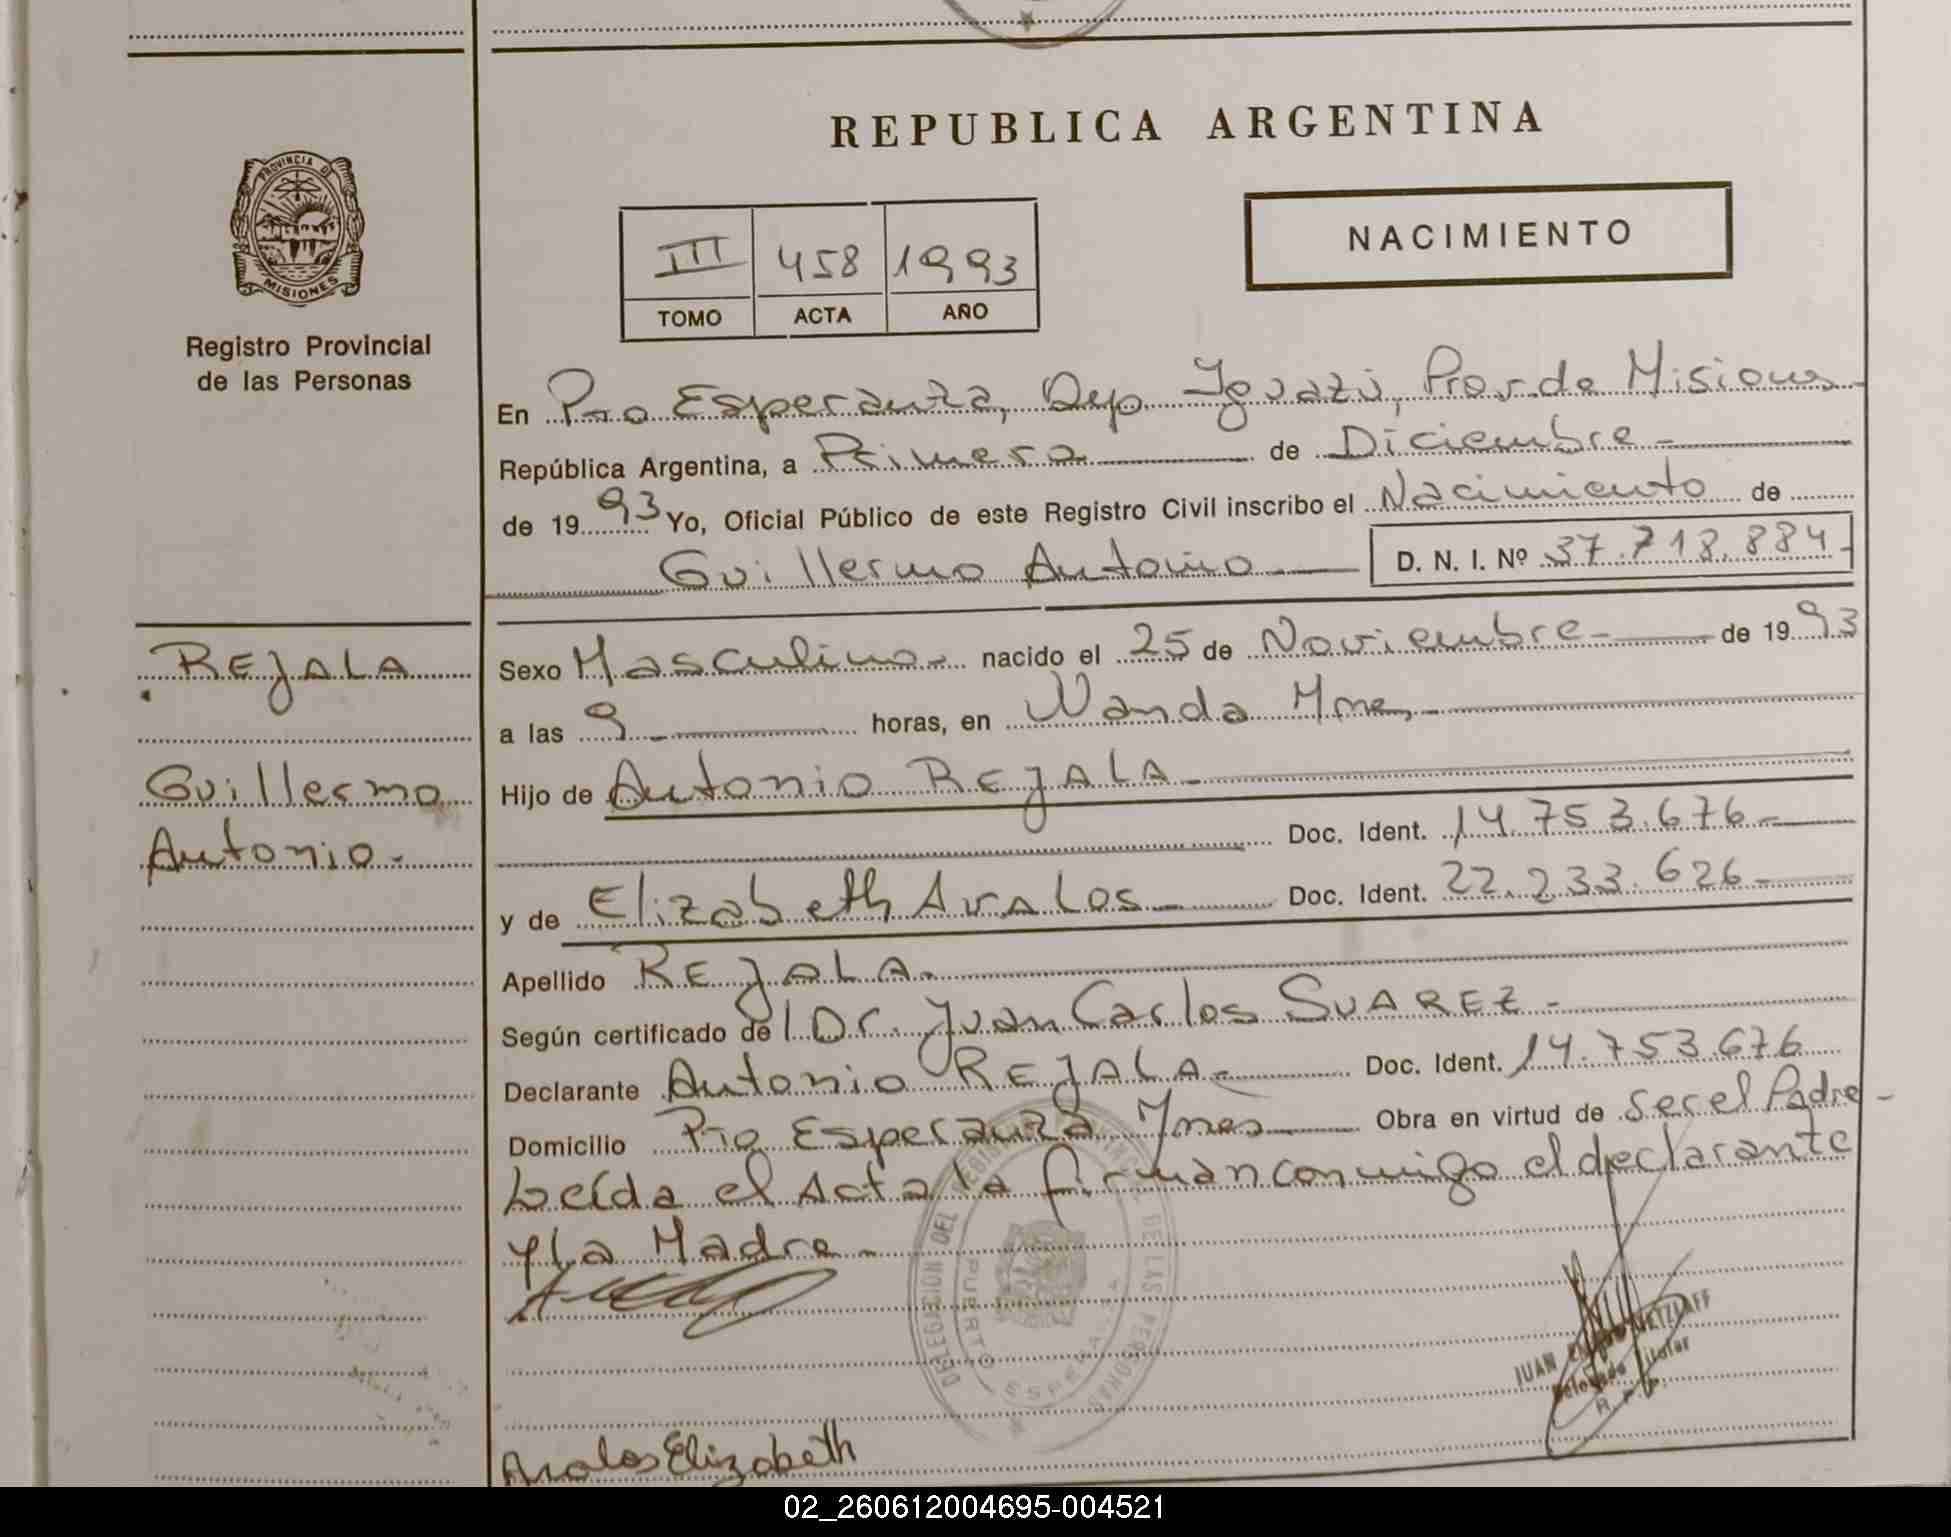 REPUBLICA ARGENTINA
PROVINCIA DE
MISIONES
Registro Provincial
de las Personas
III 458 1993
TOMO ACTA AÑO
NACIMIENTO
En Pto Esperanza, Dep. Iguazú, Prov. de Misiones
República Argentina, a Primero de Diciembre
de 1993 Yo, Oficial Público de este Registro Civil inscribo el Nacimiento de
Guillermo Antonio D. N. I. Nº 37.718.884
REJALA
Guillermo
Antonio
Sexo Masculino nacido el 25 de Noviembre de 1993
a las 9 horas, en Wanda Mnes
Hijo de Antonio REJALA
Doc. Ident. 14.753.676
y de Elizabeth Avalos Doc. Ident. 22.233.626
Apellido REJALA
Según certificado del Dr. Juan Carlos SUAREZ
Declarante Antonio REJALA Doc. Ident. 14.753.676
Domicilio Pto Esperanza Mnes Obra en virtud de ser el Padre
Leída el Acta la firman conmigo el declarante
y La Madre
DELEGACION DEL REGISTRO PROVINCIAL DE LAS PERSONAS
PUERTO ESPERANZA
JUAN
Delegado Titular
Avalos Elizabeth
02_260612004695-004521